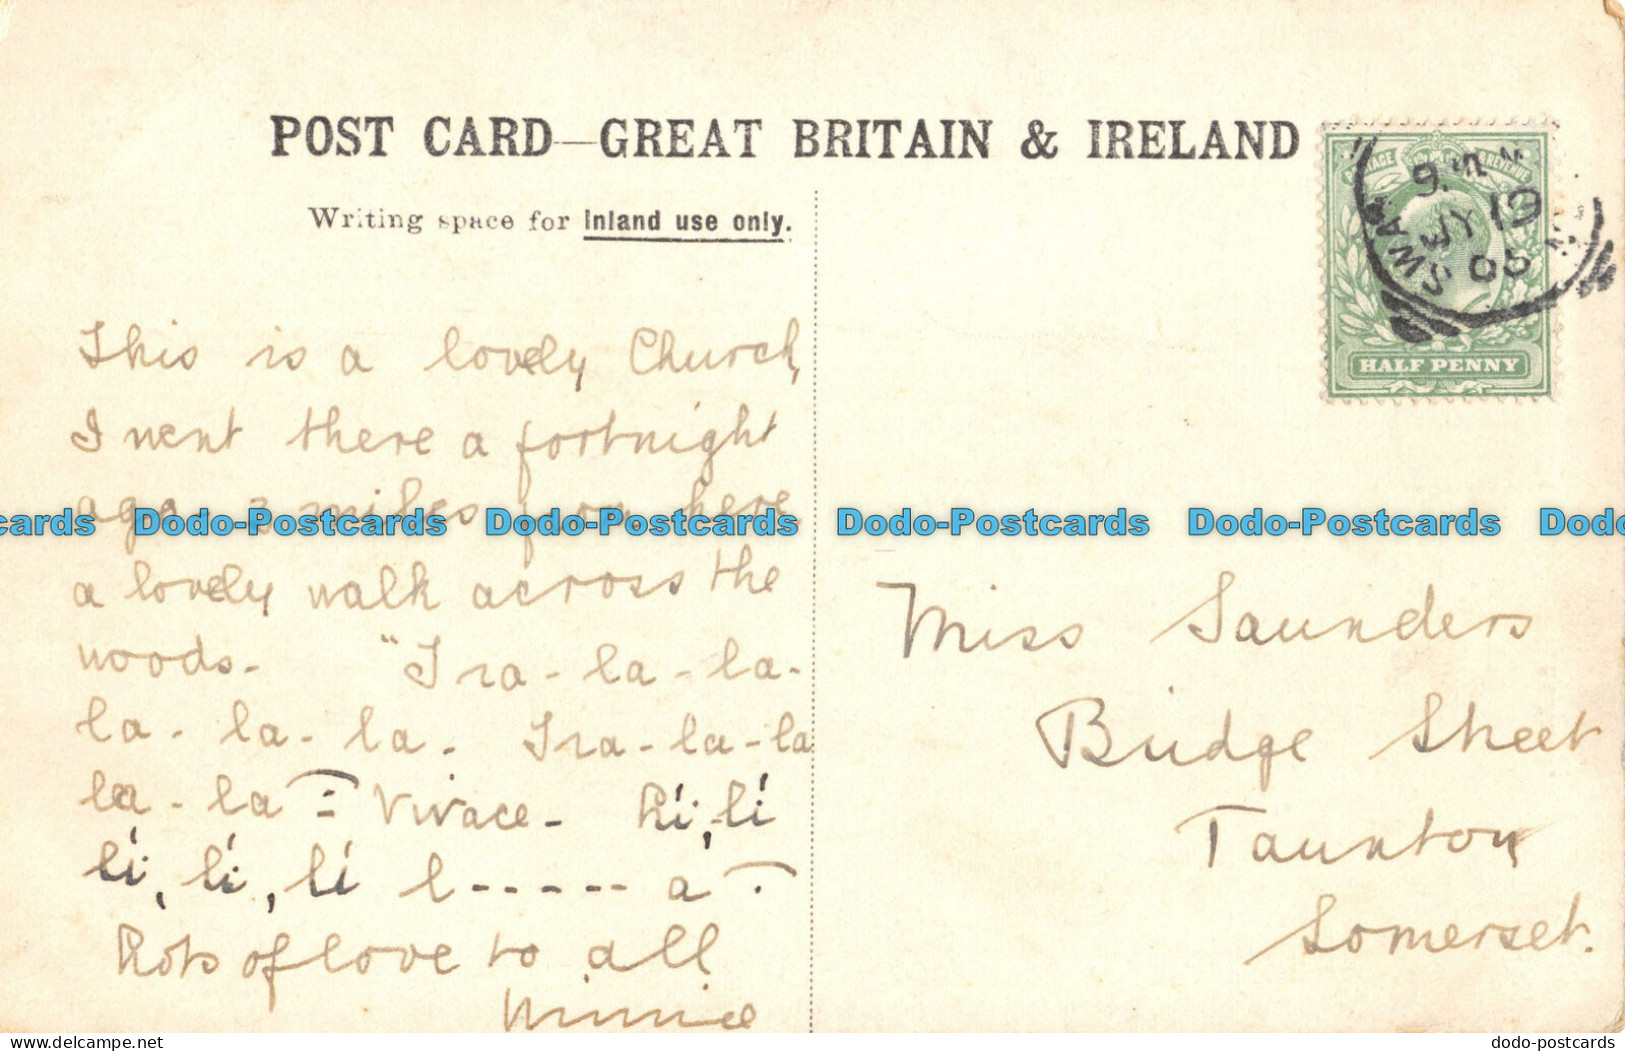 POST CARD—GREAT BRITAIN & IRELAND
Writing space for Inland use only.
POSTAGE REVENUE
JY 19
05
HALF PENNY
This is a lovely Church,
I went there a fortnight
ago 3 miles from here
a lovely walk across the
woods. "Tra-la-la-
la-la-la-. Tra-la-la
la-la - Vivace - Ri, li
li, li, li l------a.
Lots of love to all
Minnie
Miss Saunders
Bridge Street
Taunton
Somerset.
cards Dodo-Postcards Dodo-Postcards Dodo-Postcards Dodo-Postcards Dodo
www.delcampe.net
dodo-postcards